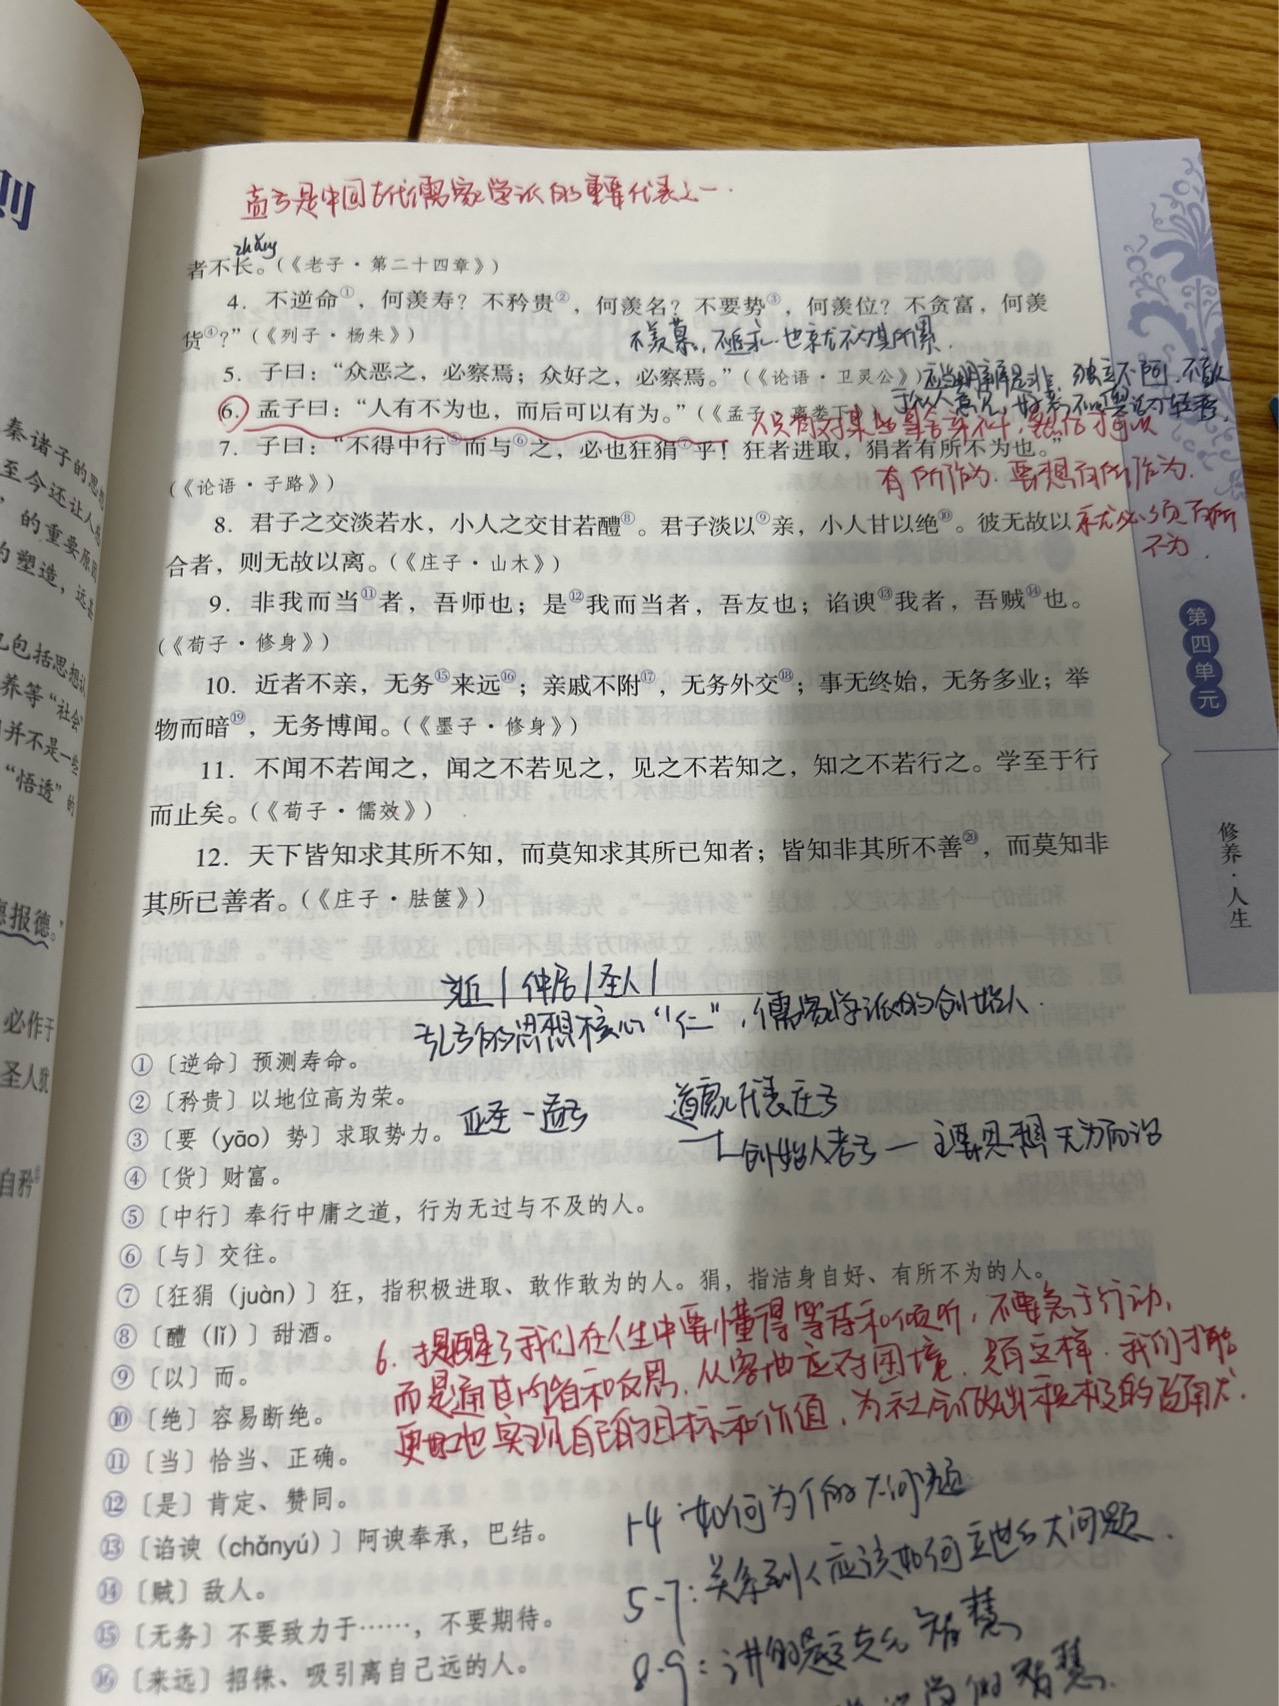 则
秦诸子的思想
至今还让人
的重要原因
的塑造，远
包括思想认
养等“社会
并不是一些
“悟透”的
德报德。”
必作于
圣人犹
自矜
孟子是中国古代儒家学派的重要代表之一.
zhǎng
者不长。（《老子·第二十四章》）
4. 不逆命①，何羡寿？不矜贵②，何羡名？不要势③，何羡位？不贪富，何羡
货④？”（《列子·杨朱》）
不羡慕，不追求.也就不为其所累.
5. 子曰：“众恶之，必察焉；众好之，必察焉。”（《论语·卫灵公》）
应当明辨是非，独立不阿，不
6. 孟子曰：“人有不为也，而后可以有为。”（《孟子·离娄下》）
7. 子曰：“不得中行⑤而与⑥之，必也狂狷⑦乎！狂者进取，狷者有所不为也。”
（《论语·子路》）
有所作为.要想有所作为.
就必须有所
不为.
8. 君子之交淡若水，小人之交甘若醴⑧。君子淡以⑨亲，小人甘以绝⑩。彼无故以
合者，则无故以离。（《庄子·山木》）
9. 非我而当⑪者，吾师也；是⑫我而当者，吾友也；谄谀⑬我者，吾贼⑭也。
（《荀子·修身》）
10. 近者不亲，无务⑮来远⑯；亲戚不附⑰，无务外交⑱；事无终始，无务多业；举
物而暗⑲，无务博闻。（《墨子·修身》）
11. 不闻不若闻之，闻之不若见之，见之不若知之，知之不若行之。学至于行
而止矣。（《荀子·儒效》）
12. 天下皆知求其所不知，而莫知求其所已知者；皆知非其所不善⑳，而莫知非
其所已善者。（《庄子·胠箧》）
第四单元
修养·人生
仲尼/圣人/
孔子的思想核心“仁”，儒家学派的创始人.
①〔逆命〕预测寿命。
②〔矜贵〕以地位高为荣。
③〔要（yāo）势〕求取势力。
亚圣-孟子
道家代表庄子
创始人老子—主要思想无为而治
④〔货〕财富。
⑤〔中行〕奉行中庸之道，行为无过与不及的人。
⑥〔与〕交往。
⑦〔狂狷（juàn）〕狂，指积极进取、敢作敢为的人。狷，指洁身自好、有所不为的人。
⑧〔醴（lǐ）〕甜酒。
⑨〔以〕而。
⑩〔绝〕容易断绝。
⑪〔当〕恰当、正确。
⑫〔是〕肯定、赞同。
⑬〔谄谀（chǎnyú）〕阿谀奉承，巴结。
⑭〔贼〕敌人。
⑮〔无务〕不要致力于……，不要期待。
⑯〔来远〕招徕、吸引离自己远的人。
6.提醒了我们在人生中要懂得等待和倾听，不要急于行动，
而是通过内省和反思，从容地应对困境.只有这样.我们才能
更好地实现自己的目标和价值，为社会做出积极的贡献.
1-4：如何为人的大问题
5-7：关系到人应该如何立世的大问题.
8-9：讲的是交友智慧